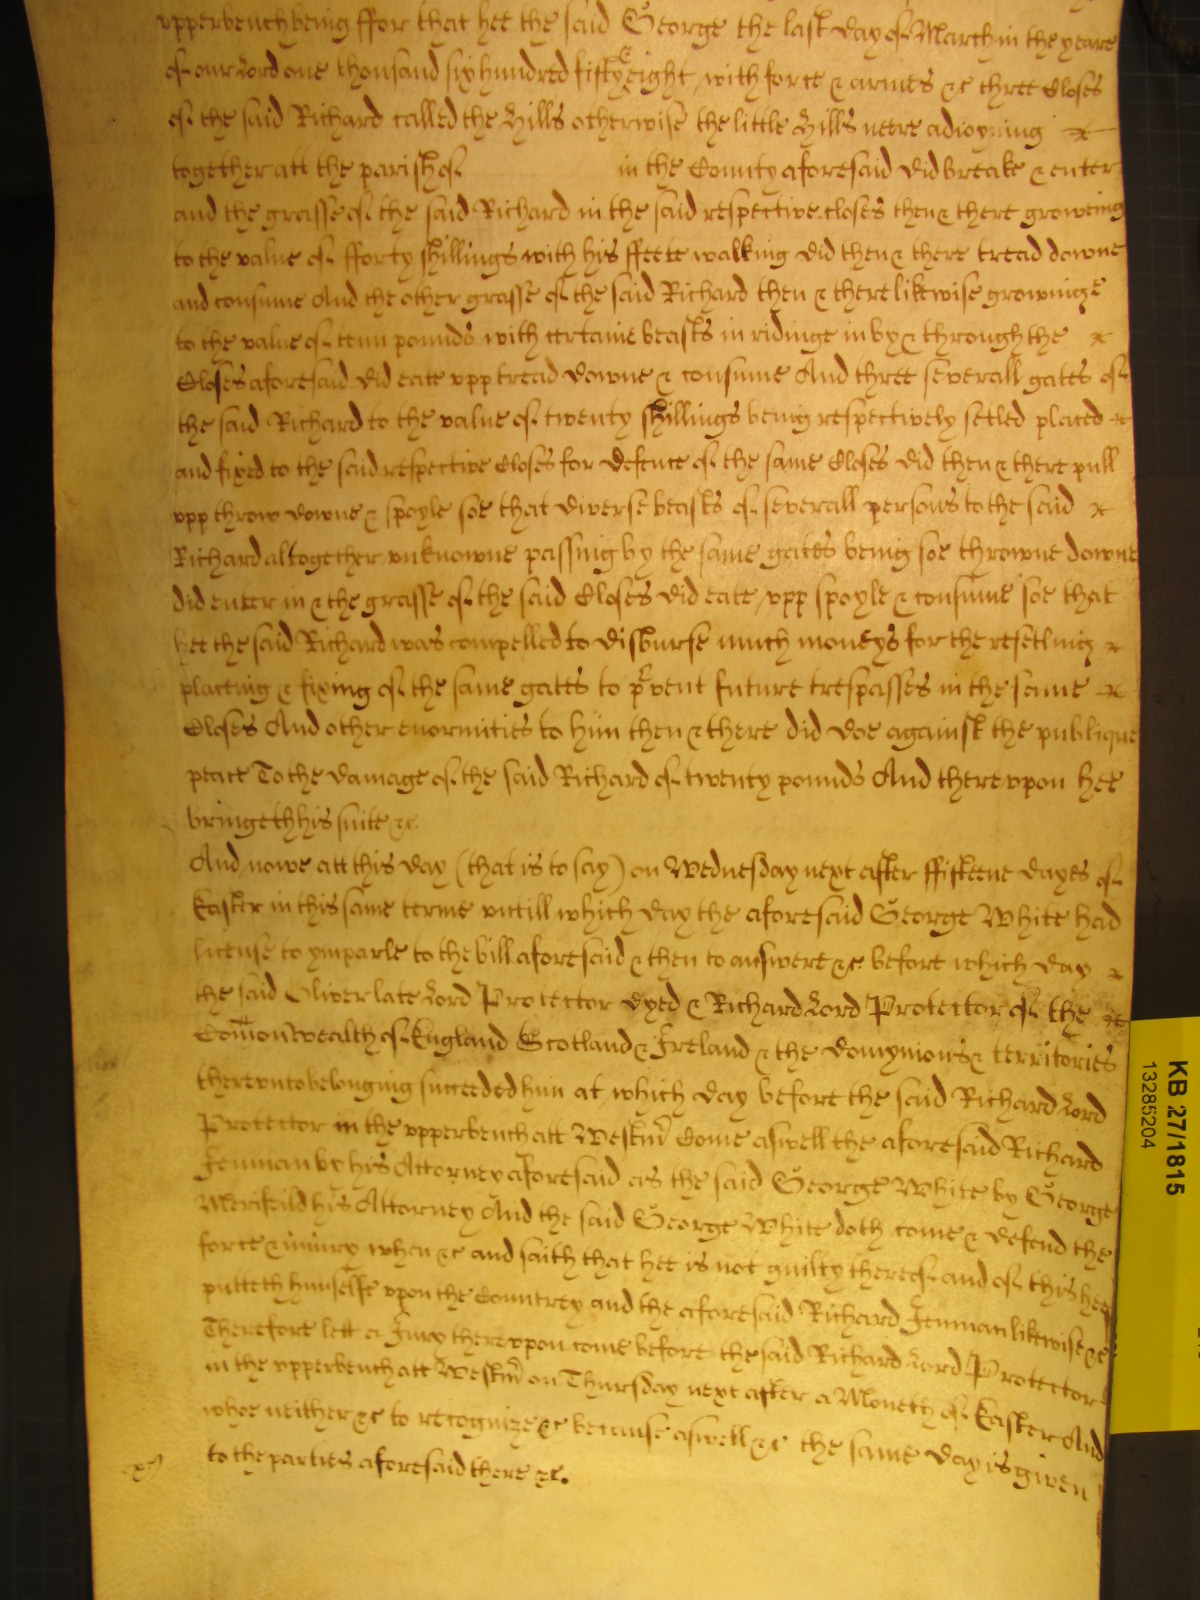 vpperbench being ffor that hee the said George the last day of March in the yeare
of our Lord one thousand six hundred fifty eight with force & armes &c three Closes
of the said Richard called the Hills otherwise the little Hills neere adioyning
together att the parish of in the County aforesaid did breake & enter
and the grasse of the said Richard in the said respective closes then & there groweing
to the value of fforty shillings with his ffeete walking did then & there tread downe
and consume And the other grasse of the said Richard then & there likewise growinge
to the value of tenn pounds with certaine beasts in ridinge in by & through the
Closes aforesaid did eate vpp tread downe & consume And three severall gates of
the said Richard to the value of twenty shillings being respectively setled placed
and fixed to the said respective Closes for defence of the same Closes did then & there pull
vpp throw downe & spoyle soe that diverse beasts of severall persons to the said
Richard altogether vnknowne passing by the same gates being soe throwne downe
did enter in & the grasse of the said Closes did eate vpp spoyle & consume soe that
hee the said Richard was compelled to disburse much moneys for the resetling
placeing & fixing of the same gates to prvent future trespasses in the same
Closes And other enormities to him then & there did doe against the publique
peace To the damage of the said Richard of twenty pounds And therevpon hee
bringeth his suite &c
And nowe att this day (that is to say) on Wednesday next after ffifteene dayes of
Easter in this same terme vntill which day the aforesaid George White had
license to ymparle to the bill aforesaid & then to answere &c before which day
the said Oliver late Lord Protector dyed & Richard Lord Protector of the
Comonwealth of England Scotland & Ireland & the domynions & territories
therevnto belonging succeeded him at which day before the said Richard Lord
Protector in the vpperbench att Westmr come aswell the aforesaid Richard
Jenman by his Attorney aforesaid as the said George White by George
Merifeild his Attorney And the said George White doth come & defend the
force & iniury when &c and saith that hee is not guilty thereof and of this hee
putteth himselfe vpon the Countrey and the aforesaid Richard Jenman likewise &c
Therefore lett a Jury therevpon come before the said Richard Lord Protector
in the vpperbench att Westmr on Thursday next after a Moneth of Easter And
whoe neither &c to recognize &c because aswell &c the same day is given
to the parties aforesaid there &c.
KB 27/1815
13285204